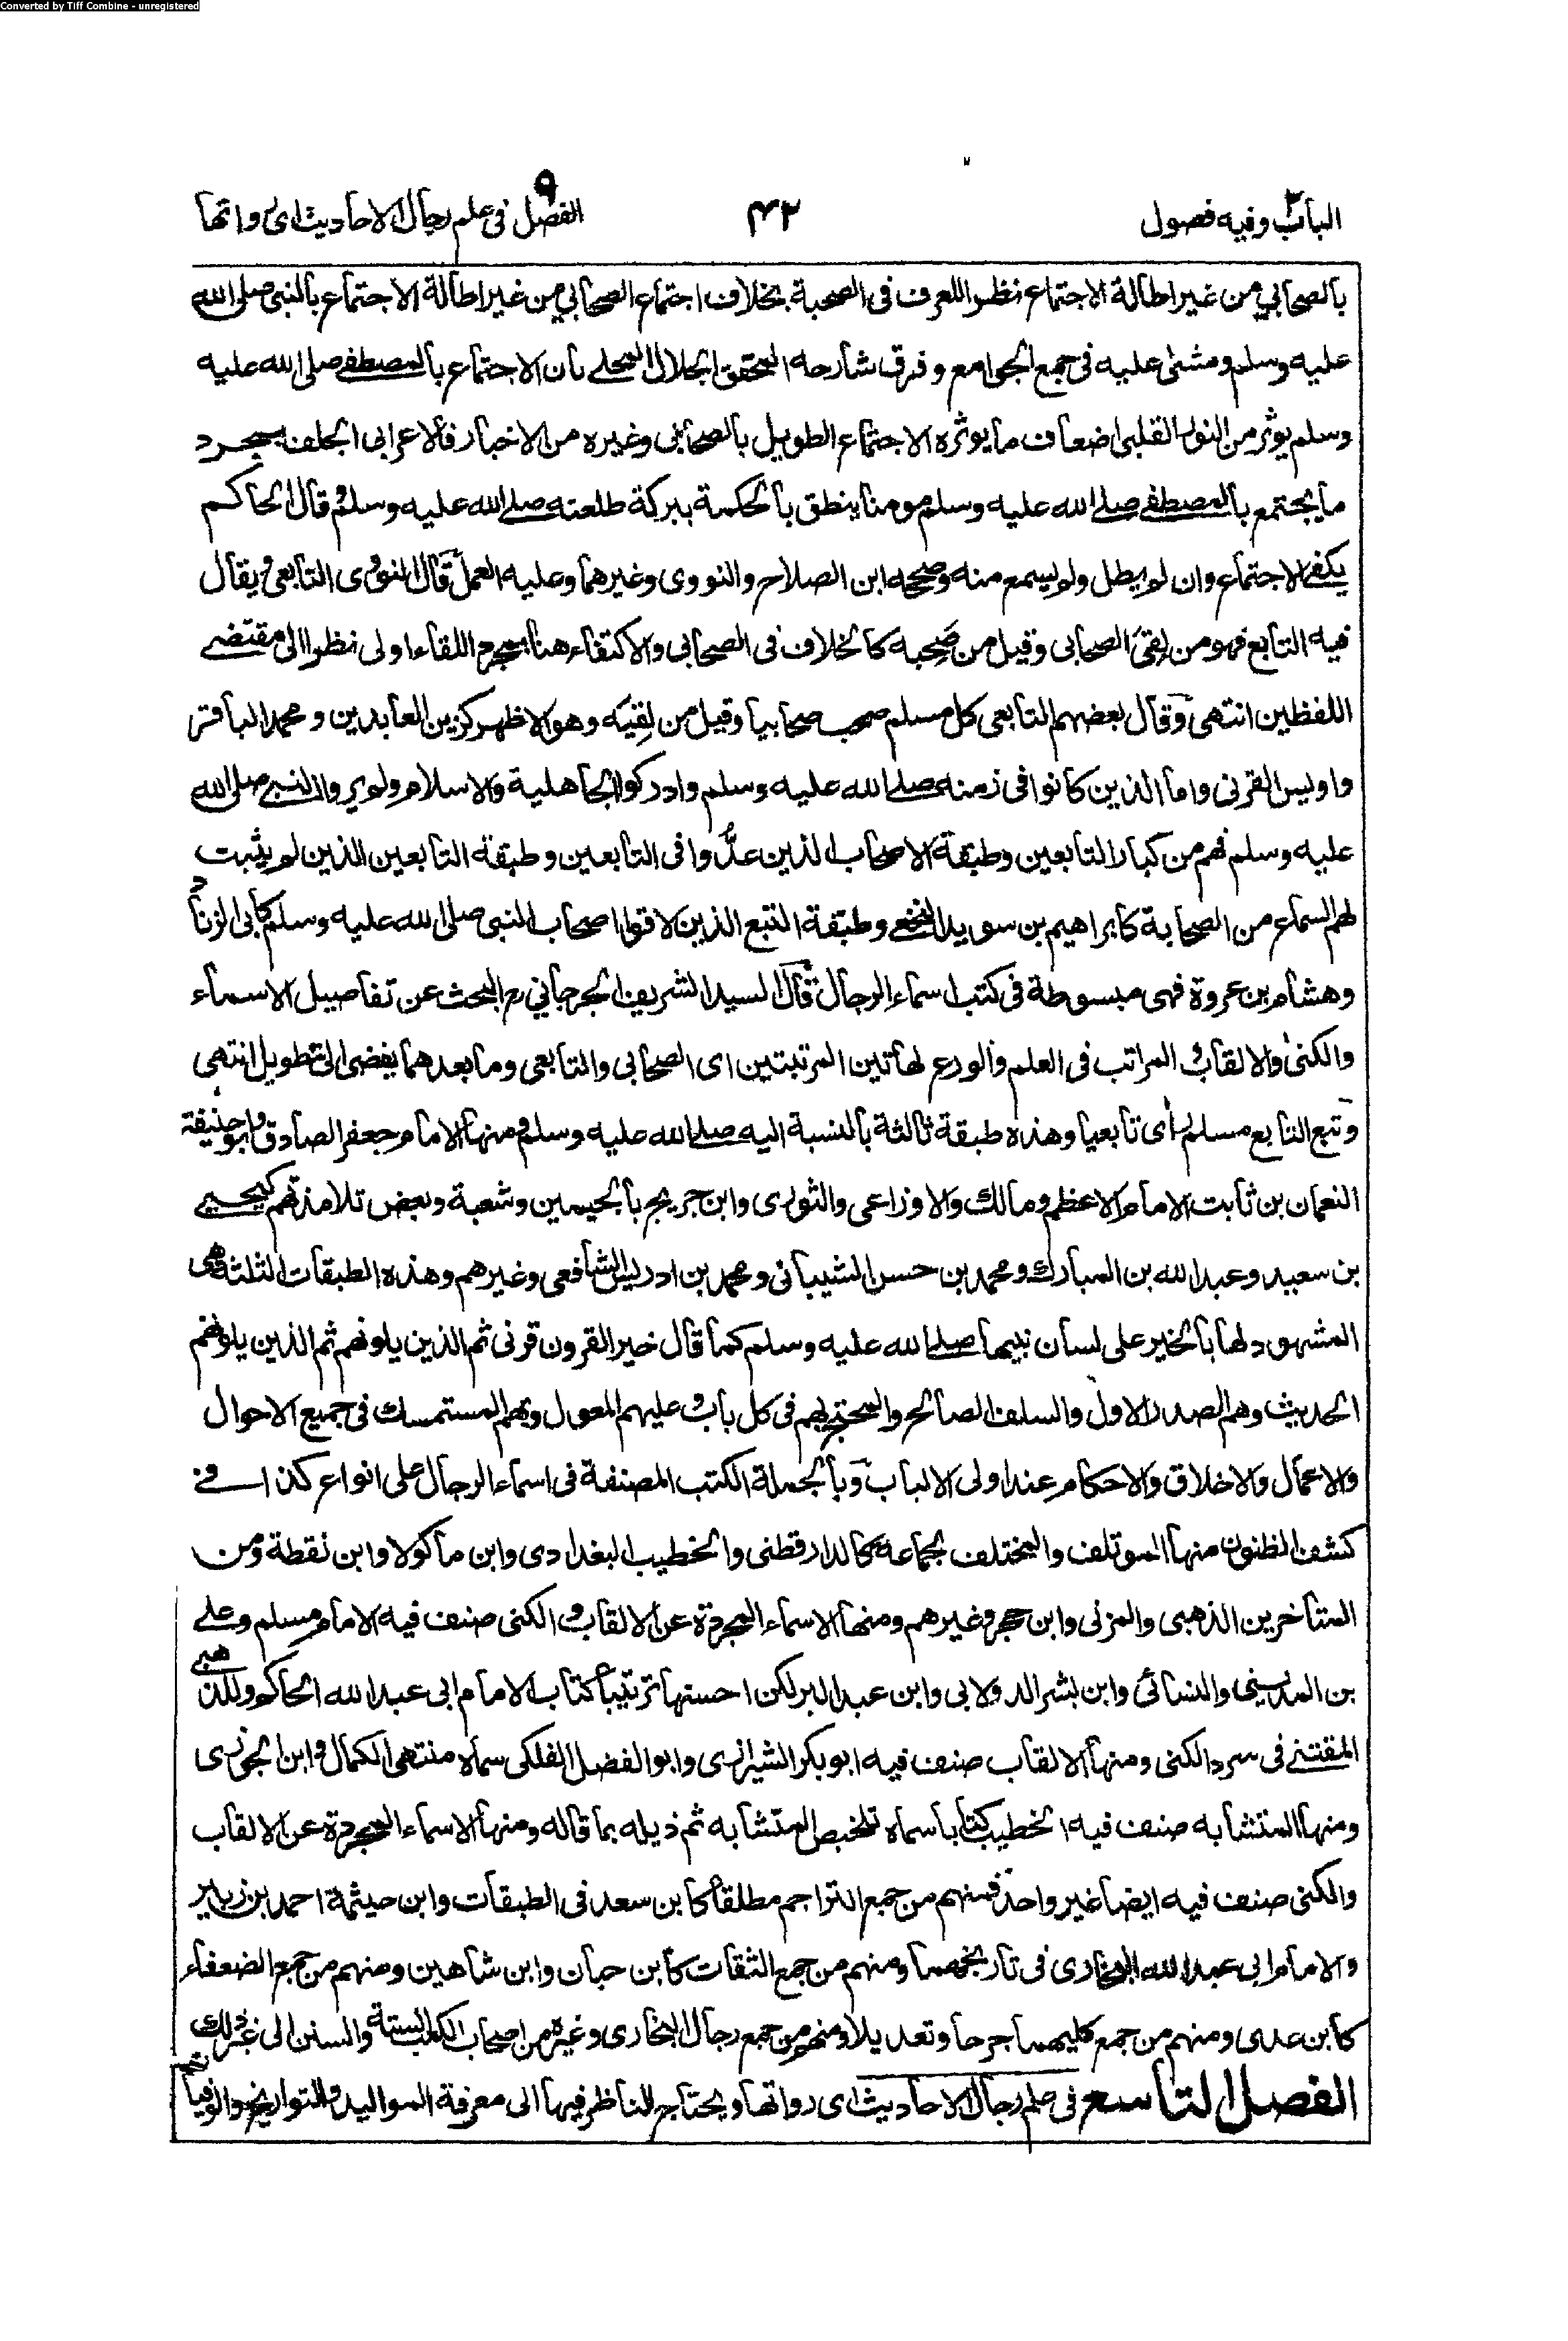 Converted by Tiff Combine - unregistered
الباب٢ وفيه فصول ۴۲ الفصل٩ في علم رجال الاحاديث اى رواتها
بالصحابي من غير اطالة الاجتماع نظرا للعرف فى الصحبة بخلاف اجتماع الصحابي من غير اطالة الاجتماع بالنبى صلى الله
عليه وسلم ومشى عليه فى جمع الجوامع وفرق شارحه المحقق الجلال المحلے بان الاجتماع بالمصطفے صلى الله عليه
وسلم يوثر من النور القلبى اضعاف ما يوثره الاجتماع الطويل بالصحابى وغيره من الاخيار فالاعرابى الجلف بمجرد
ما يجتمع بالمصطفے صلے الله عليه وسلم مومنا ينطق بالحكمة ببركة طلعته صلے الله عليه وسلم وقال الحاكم
يكفے الاجتماع وان لم يطل ولم يسمع منه وصححه ابن الصلاح والنووى وغيرهما وعليه العمل قال النووى التابعى ويقال
فيه التابع فهو من لقى الصحابى وقيل من صحبه كالخلاف فى الصحابى والاكتفاء هنا بمجرد اللقاء اولى نظرا الى مقتضے
اللفظين انتهى وقال بعضهم التابعى كل مسلم صحب صحابيا وقيل من لقيه وهو الاظهر كزين العابدين ومحمد الباقر
واويس القرنى واما الذين كانوا فى زمنه صلے الله عليه وسلم وادركوا الجاهلية والاسلام ولم يروا النبى صلى الله
عليه وسلم فهم من كبار التابعين وطبقة الاصحاب الذين عدّوا فى التابعين وطبقة التابعين الذين لم يثبت
لهم السماع من الصحابة كابراهيم بن سويد النخعے وطبقة التبع الذين لاقوا اصحاب النبى صلى الله عليه وسلم كابى الزناد
وهشام بن عروة فهى مبسوطة فى كتب اسماء الرجال قال السيد الشريف الجرجاني رح البحث عن تفاصيل الاسماء
والكنى والالقاب والمراتب فى العلم والورع لهاتين المرتبتين اى الصحابى والتابعى وما بعدهما يفضى الى التطويل انتهى
وتبع التابع مسلم راى تابعيا وهذه طبقة ثالثة بالنسبة اليه صلے الله عليه وسلم ومنها الامام جعفر الصادق وابو حنيفة
النعمان بن ثابت الامام الاعظم ومالك والاوزاعى والثورى وابن جريج بالجيمين وشعبة وبعض تلامذتهم كيحيے
بن سعيد وعبد الله بن المبارك ومحمد بن حسن الشيبانى ومحمد بن ادريس الشافعى وغيرهم وهذه الطبقات الثلثة هى
المشهود لها بالخير على لسان نبيها صلے الله عليه وسلم كما قال خير القرون قرنى ثم الذين يلونهم ثم الذين يلونهم
الحديث وهم الصدر الاول والسلف الصالح والمحتج بهم فى كل باب وعليهم المعول وبهم المستمسك فى جميع الاحوال
والاعمال والاخلاق والاحكام عند اولى الالباب وبالجملة الكتب المصنفة فى اسماء الرجال على انواع كذا فے
كشف الظنون منها الموتلف والمختلف لجماعة كالدارقطنى والخطيب البغدادى وابن ماكولا وابن نقطة ومن
المتأخرين الذهبى والمزنى وابن حجر وغيرهم ومنها الاسماء المجردة عن الالقاب والكنى صنف فيه الامام مسلم وعلے
بن المدينى والنسائى وابن بشر الدولابى وابن عبد البر لكن احسنها ترتيبا كتاب الامام ابى عبد الله الحاكم وللذهبے
المقتنے فى سرد الكنى ومنها الالقاب صنف فيه ابو بكر الشيرازى وابو الفضل الفلكى سماه منتهى الكمال وابن الجوزى
ومنها المتشابه صنف فيه الخطيب كتابا سماه تلخيص المتشابه ثم ذيله بما قاله ومنها الاسماء المجردة عن الالقاب
والكنى صنف فيه ايضا غير واحد فمنهم من جمع التراجم مطلقا كابن سعد فى الطبقات وابن حيثمة احمد بن زهير
والامام ابى عبد الله البخارى فى تاريخهما ومنهم من جمع الثقات كابن حبان وابن شاهين ومنهم من جمع الضعفاء
كابن عدى ومنهم من جمع كليهما جرحا وتعديلا ومنهم من جمع رجال البخارى وغيره من اصحاب الكتب الستة والسنن الى غير ذلك
الفصل التاسع فى علم رجال الاحاديث اى رواتها ويحتاج الناظر فيها الى معرفة المواليد والتواريخ والوفيات